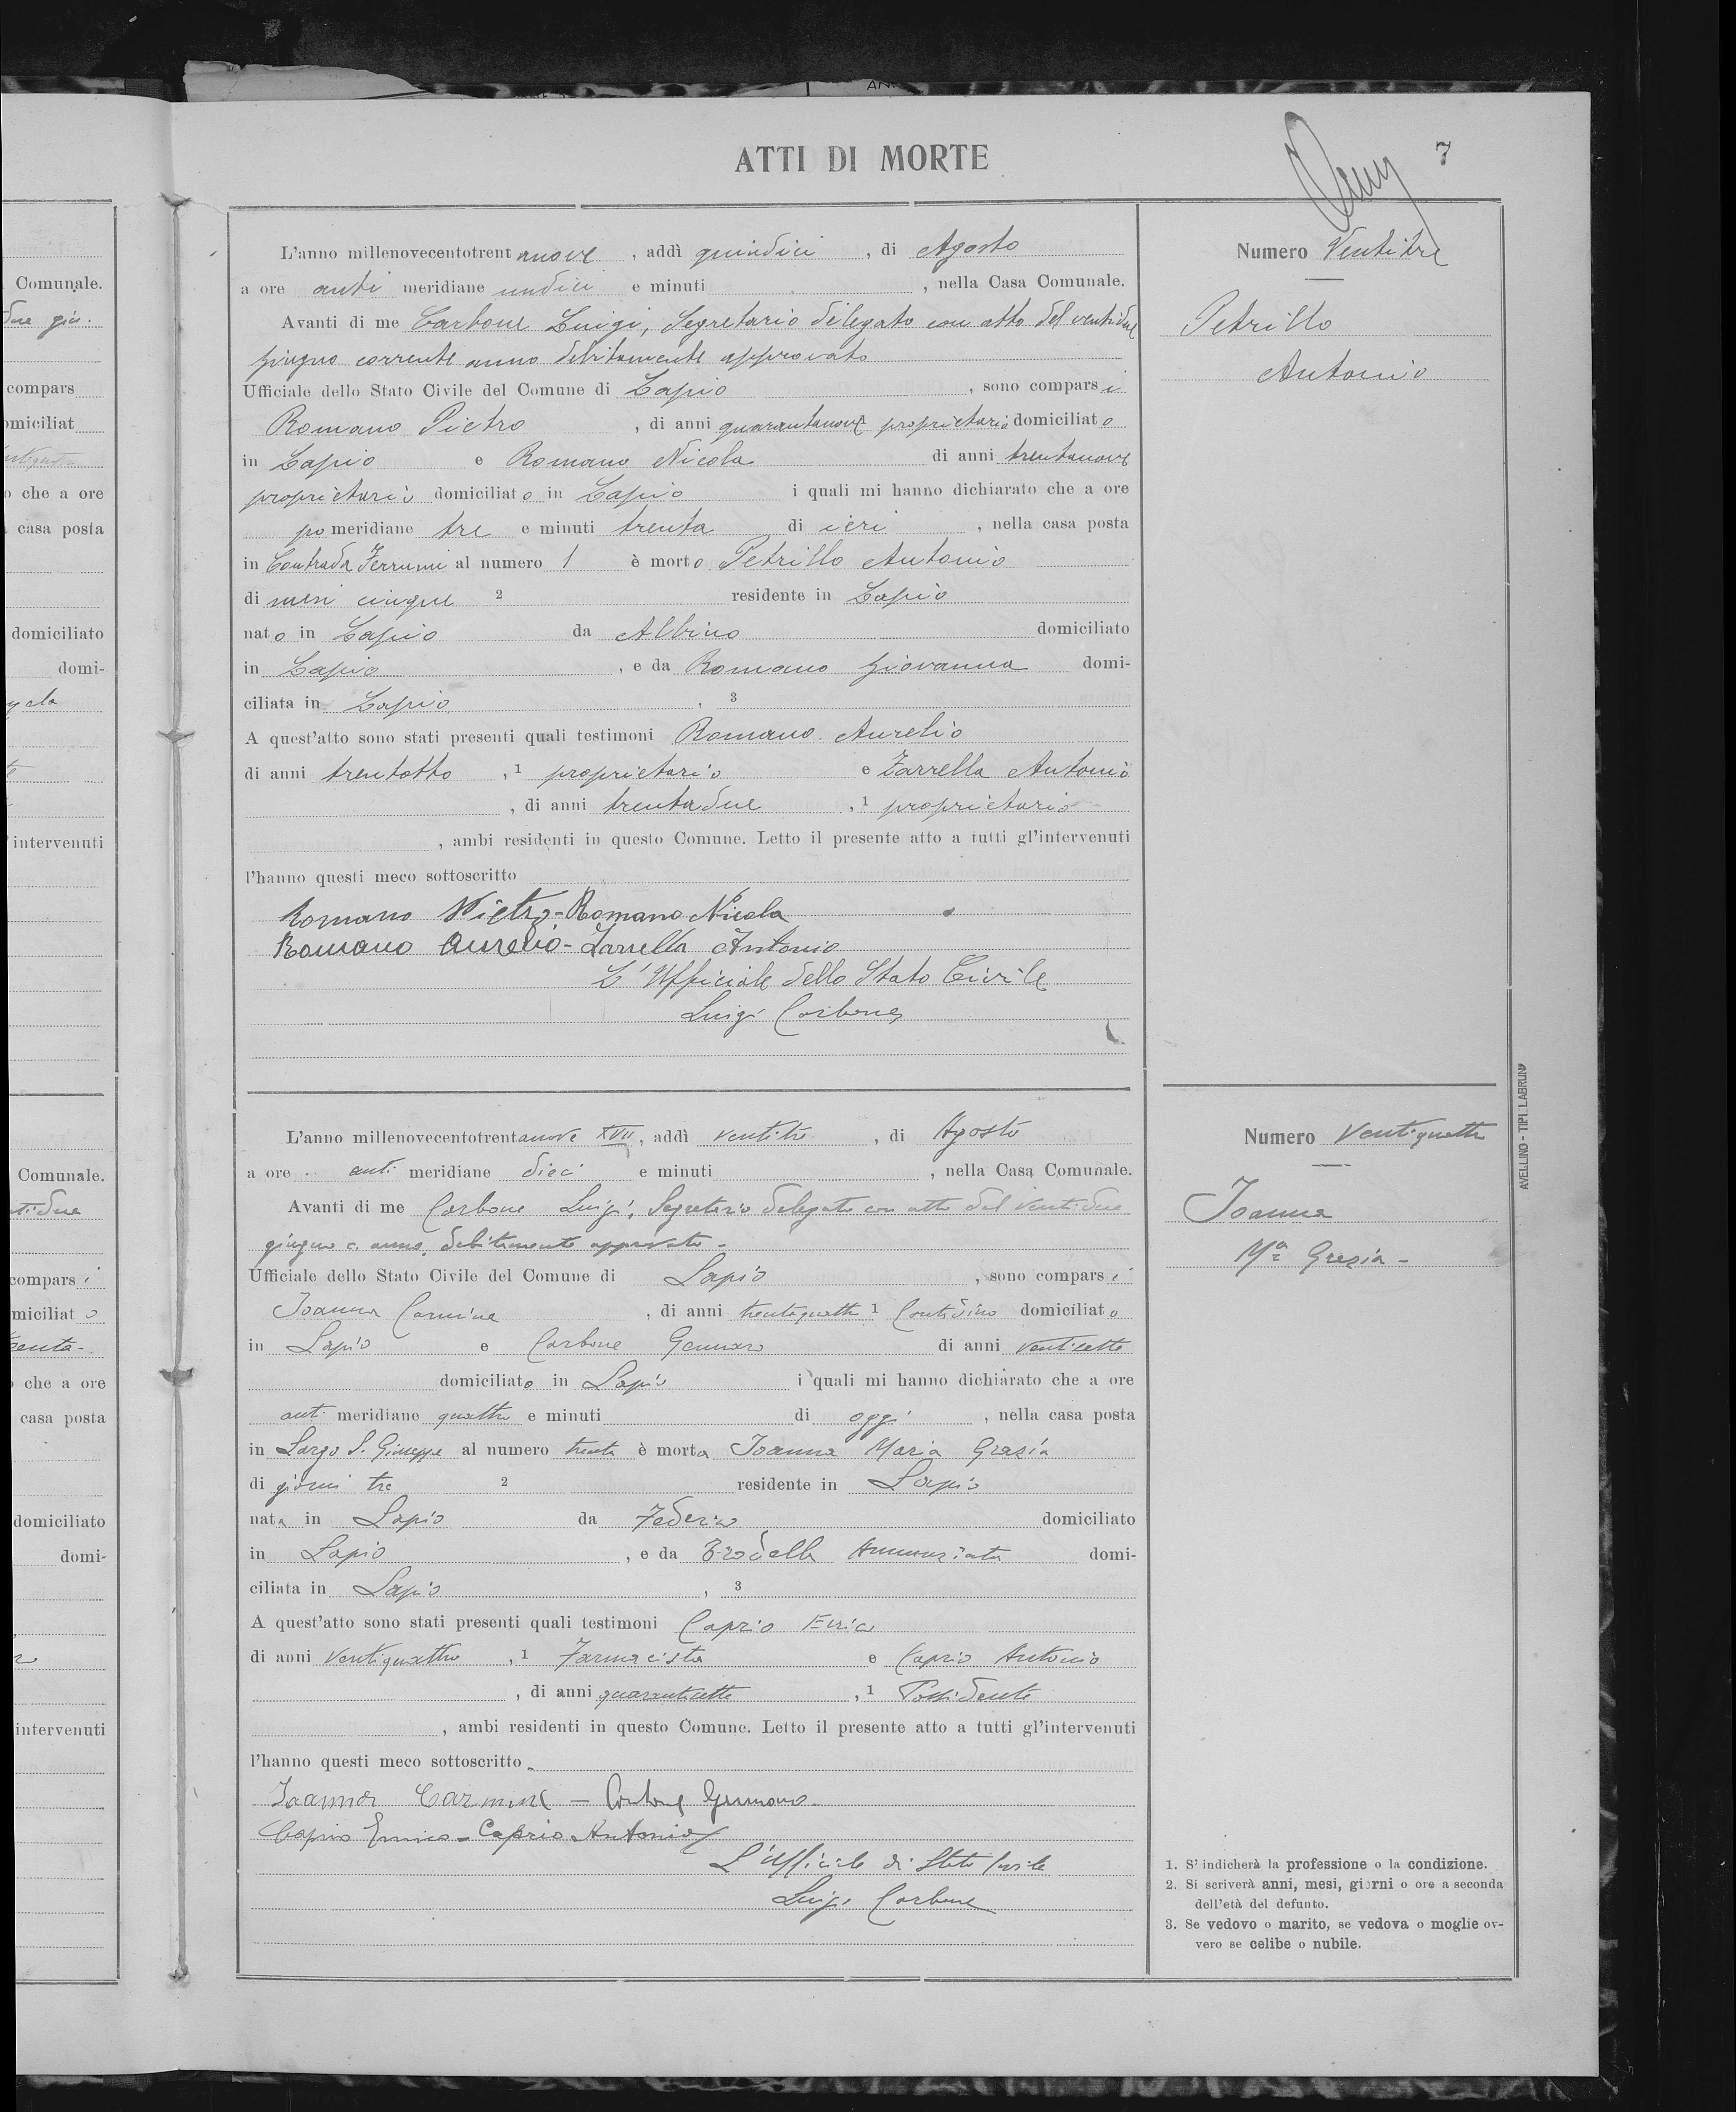 ATTI DI MORTE
7
L'anno millenovecentotrentanove, addì quindici, di Agosto
a ore anti meridiane undici e minuti , nella Casa Comunale.
Avanti di me Carbone Luigi, Segretario delegato con atto del ventidue
giugno corrente anno debitamente approvato
Ufficiale dello Stato Civile del Comune di Lapio, sono comparsi
Romano Pietro, di anni quarantanove proprietario domiciliato
in Lapio e Romano Nicola di anni trentanove
proprietario domiciliato in Lapio i quali mi hanno dichiarato che a ore
po meridiane tre e minuti trenta di ieri, nella casa posta
in Contrada al numero 1 è morto Petrillo Antonio
di mesi cinque 2 residente in Lapio
nato in Lapio da Albino domiciliato
in Lapio, e da Romano Giovanna domi-
ciliata in Lapio, 3
A quest'atto sono stati presenti quali testimoni Romano Aurelio
di anni trentotto, 1 proprietario e Zarrella Antonio
, di anni trentadue, 1 proprietario
, ambi residenti in questo Comune. Letto il presente atto a tutti gl'intervenuti
l'hanno questi meco sottoscritto
Romano Pietro - Romano Nicola
Romano Aurelio - Zarrella Antonio
L'Ufficiale dello Stato Civile
Luigi Carbone
Numero Ventitre
Petrillo
Antonio
L'anno millenovecentotrentanove XVII, addì ventitre, di Agosto
a ore anti meridiane dieci e minuti , nella Casa Comunale.
Avanti di me Carbone Luigi, Segretario delegato con atto del ventidue
giugno c. anno, debitamente approvato -
Ufficiale dello Stato Civile del Comune di Lapio, sono comparsi
Ioanna Carmine, di anni trentaquattro 1 Contadino domiciliato
in Lapio e Carbone Gennaro di anni ventisette
domiciliato in Lapio i quali mi hanno dichiarato che a ore
anti meridiane quattro e minuti di oggi, nella casa posta
in Largo S. Giuseppe al numero trenta è morta Ioanna Maria Grazia
di giorni tre 2 residente in Lapio
nata in Lapio da Federico domiciliato
in Lapio, e da Annunziata domi-
ciliata in Lapio, 3
A quest'atto sono stati presenti quali testimoni Caprio Enrico
di anni ventiquattro, 1 Farmacista e Caprio Antonio
, di anni quarantasette, 1 Possidente
, ambi residenti in questo Comune. Letto il presente atto a tutti gl'intervenuti
l'hanno questi meco sottoscritto.
Ioanna Carmine - Carbone Gennaro
Caprio Enrico - Caprio Antonio
L'Ufficiale di Stato Civile
Luigi Carbone
Numero Ventiquattro
Ioanna
Mª Grazia -
1. S'indicherà la professione o la condizione.
2. Si scriverà anni, mesi, giorni o ore a seconda
dell'età del defunto.
3. Se vedovo o marito, se vedova o moglie ov-
vero se celibe o nubile.
AVELLINO - TIP. LABRUNA
Comunale.
due giu.
compars
omiciliat
o che a ore
casa posta
domiciliato
domi-
intervenuti
Comunale.
compars i
miciliat o
che a ore
casa posta
domiciliato
domi-
intervenuti